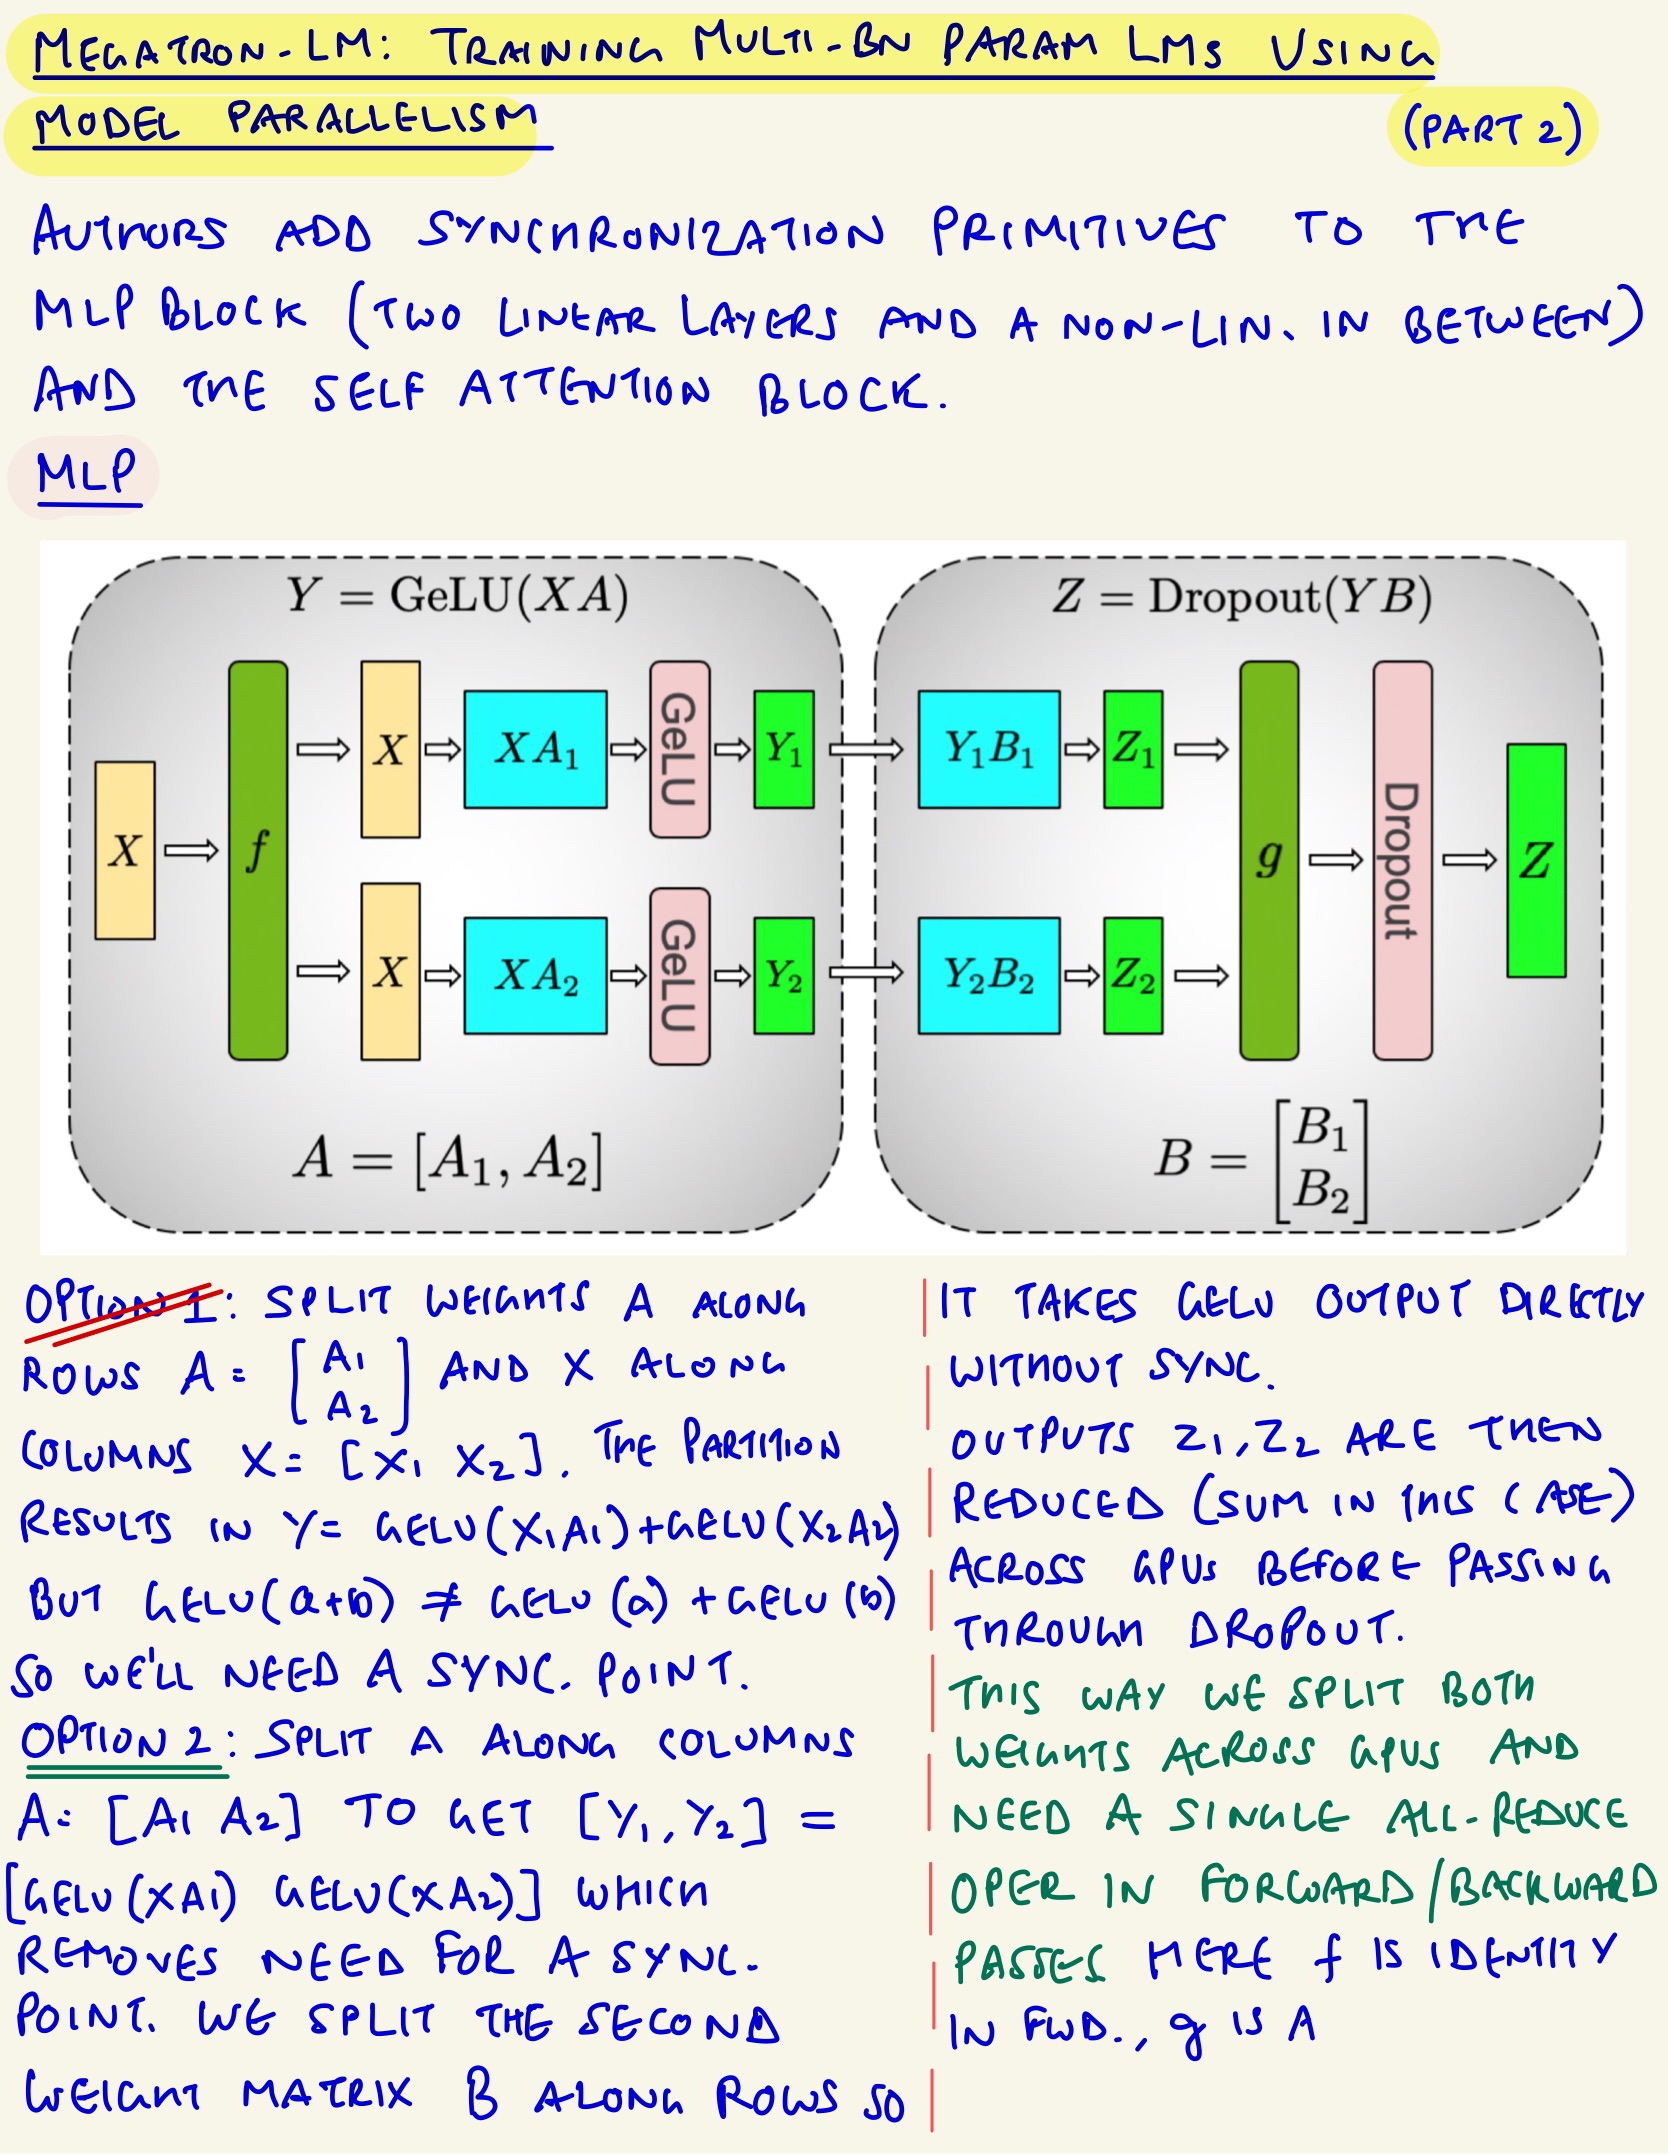 MEGATRON-LM: TRAINING MULTI-BN PARAM LMs USING
MODEL PARALLELISM
(PART 2)
AUTHORS ADD SYNCHRONIZATION PRIMITIVES TO THE
MLP BLOCK (TWO LINEAR LAYERS AND A NON-LIN. IN BETWEEN)
AND THE SELF ATTENTION BLOCK.
MLP
Y = GeLU(XA)
X
f
X
XA₁
GeLU
Y₁
X
XA₂
GeLU
Y₂
A = [A₁, A₂]
Z = Dropout(YB)
Y₁B₁
Z₁
Y₂B₂
Z₂
g
Dropout
Z
B = [B₁
B₂]
OPTION 1: SPLIT WEIGHTS A ALONG
ROWS A = [A1
A2] AND X ALONG
COLUMNS X = [X1 X2]. THE PARTITION
RESULTS IN Y = GELU(X1A1)+GELU(X2A2)
BUT GELU(a+b) ≠ GELU(a)+GELU(b)
SO WE'LL NEED A SYNC. POINT.
OPTION 2: SPLIT A ALONG COLUMNS
A = [A1 A2] TO GET [Y1, Y2] =
[GELU(XA1) GELU(XA2)] WHICH
REMOVES NEED FOR A SYNC.
POINT. WE SPLIT THE SECOND
WEIGHT MATRIX B ALONG ROWS SO
IT TAKES GELU OUTPUT DIRECTLY
WITHOUT SYNC.
OUTPUTS Z1, Z2 ARE THEN
REDUCED (SUM IN THIS CASE)
ACROSS GPUs BEFORE PASSING
THROUGH DROPOUT.
THIS WAY WE SPLIT BOTH
WEIGHTS ACROSS GPUS AND
NEED A SINGLE ALL-REDUCE
OPER IN FORWARD/BACKWARD
PASSES HERE f IS IDENTITY
IN FWD., g IS A